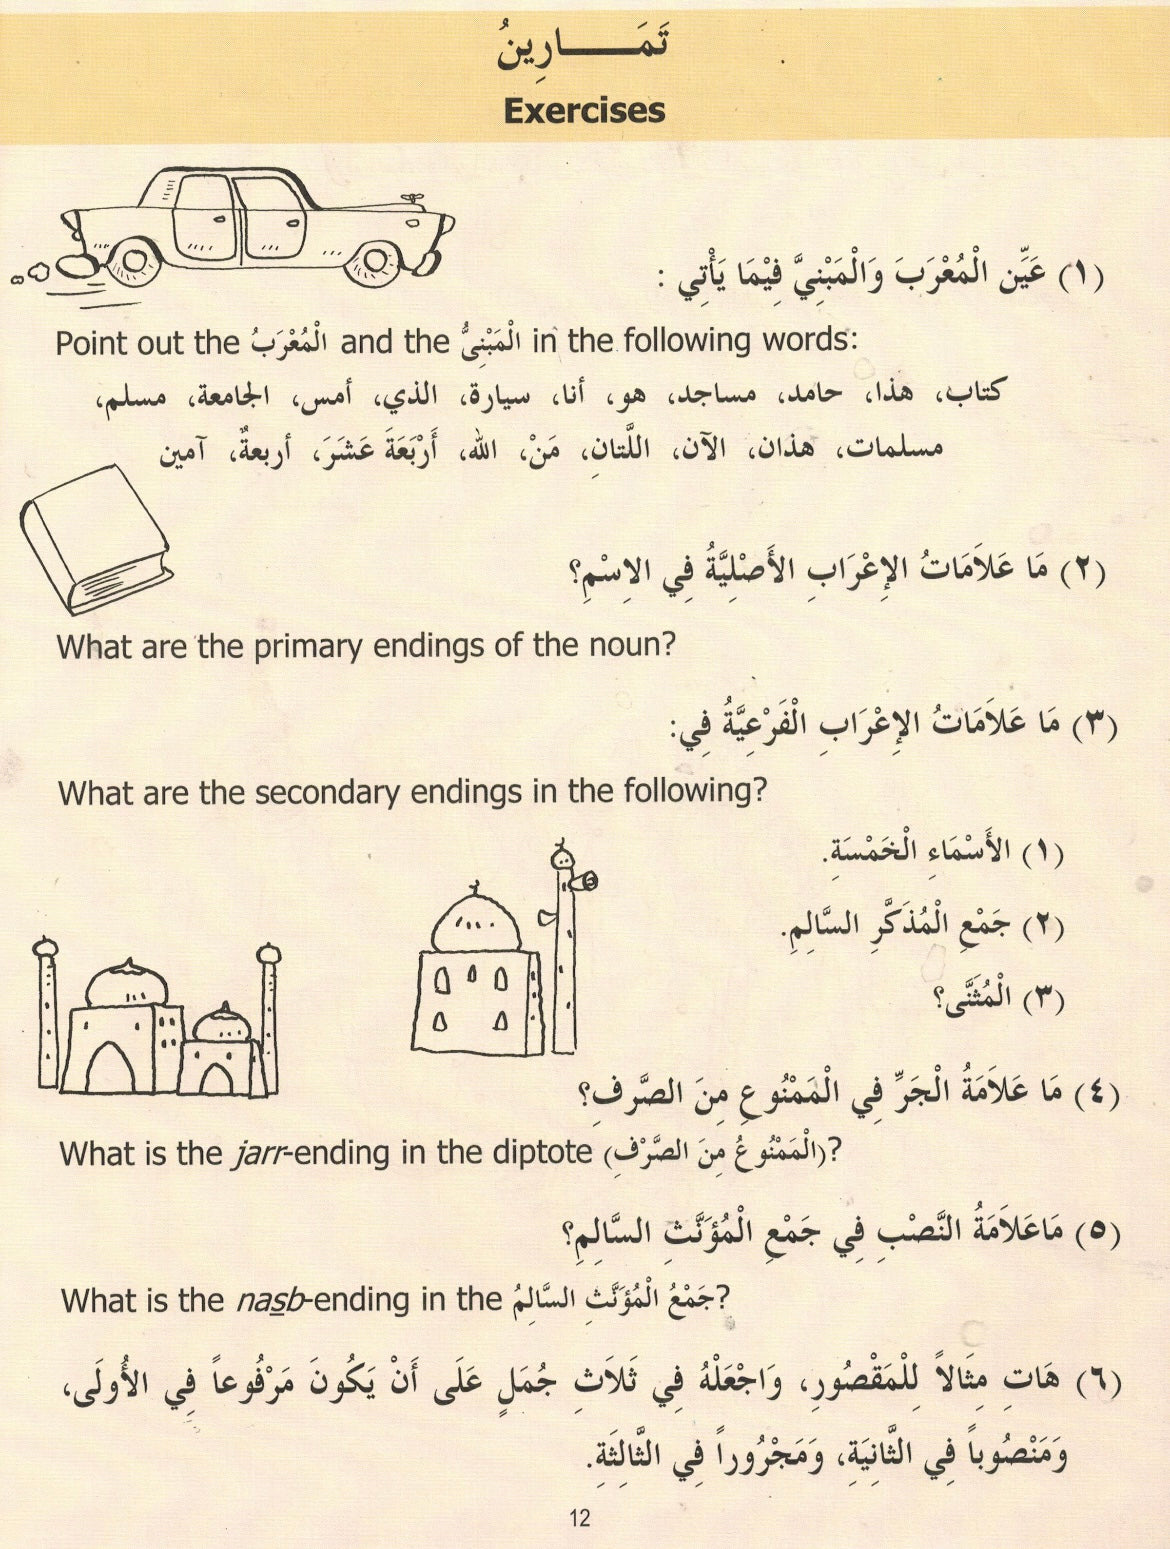 تَمَـــــارِينُ
Exercises
(١) عَيِّن الْمُعْرَبَ وَالْمَبْنِيَّ فِيْمَا يَأْتِي :
Point out the الْمُعْرَبُ and the الْمَبْنِيُّ in the following words:
كتاب، هذا، حامد، مساجد، هو، أنا، سيارة، الذي، أمس، الجامعة، مسلم،
مسلمات، هذان، الآن، اللَّتانِ، مَنْ، الله، أَرْبَعَةَ عَشَرَ، أربعةٌ، آمين
(٢) مَا عَلاَمَاتُ الإِعْرَابِ الأَصْلِيَّةُ فِي الاِسْمِ؟
What are the primary endings of the noun?
(٣) مَا عَلاَمَاتُ الإِعْرَابِ الْفَرْعِيَّةُ فِي:
What are the secondary endings in the following?
(١) الأَسْمَاءِ الْخَمْسَةِ.
(٢) جَمْعِ الْمُذَكَّرِ السَّالِمِ.
(٣) الْمُثَنَّى؟
(٤) مَا عَلاَمَةُ الْجَرِّ فِي الْمَمْنُوعِ مِنَ الصَّرفِ؟
What is the jarr-ending in the diptote (الْمَمْنُوعُ مِنَ الصَّرْفِ)?
(٥) مَاعَلاَمَةُ النَّصْبِ فِي جَمْعِ الْمُؤَنَّثِ السَّالِمِ؟
What is the nasb-ending in the جَمْعُ الْمُؤَنَّثِ السَّالِمُ?
(٦) هَاتِ مِثَالاً لِلْمَقْصُورِ، وَاجْعَلْهُ فِي ثَلاَثِ جُمَلٍ عَلَى أَنْ يَكُونَ مَرْفُوعاً فِي الأُولَى،
وَمَنْصُوباً فِي الثَّانِيَةِ، وَمَجْرُوراً فِي الثَّالِثَةِ.
12